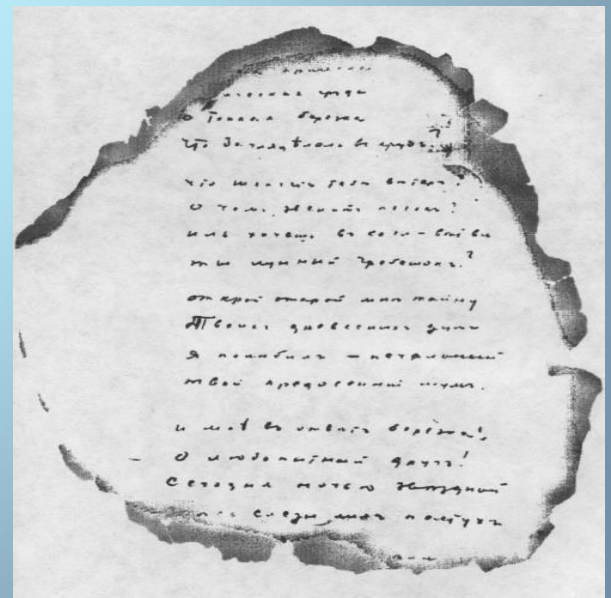 прическа
ическая грудь
О тонкая березка
Что загляделась в прудъ?
что шепчетъ тебе ветеръ?
О чемъ звенитъ песокъ?
иль хочешь въ косы-ветви
ты лунный гребешокъ?
открой открой мне тайну
Твоихъ древесныхъ думъ
Я полюбилъ – печальный
твой предосенний шумъ.
и мнѣ въ ответъ берёзка:
О любопытный другъ!
Сегодня ночью звездной
слезы лилъ пастухъ